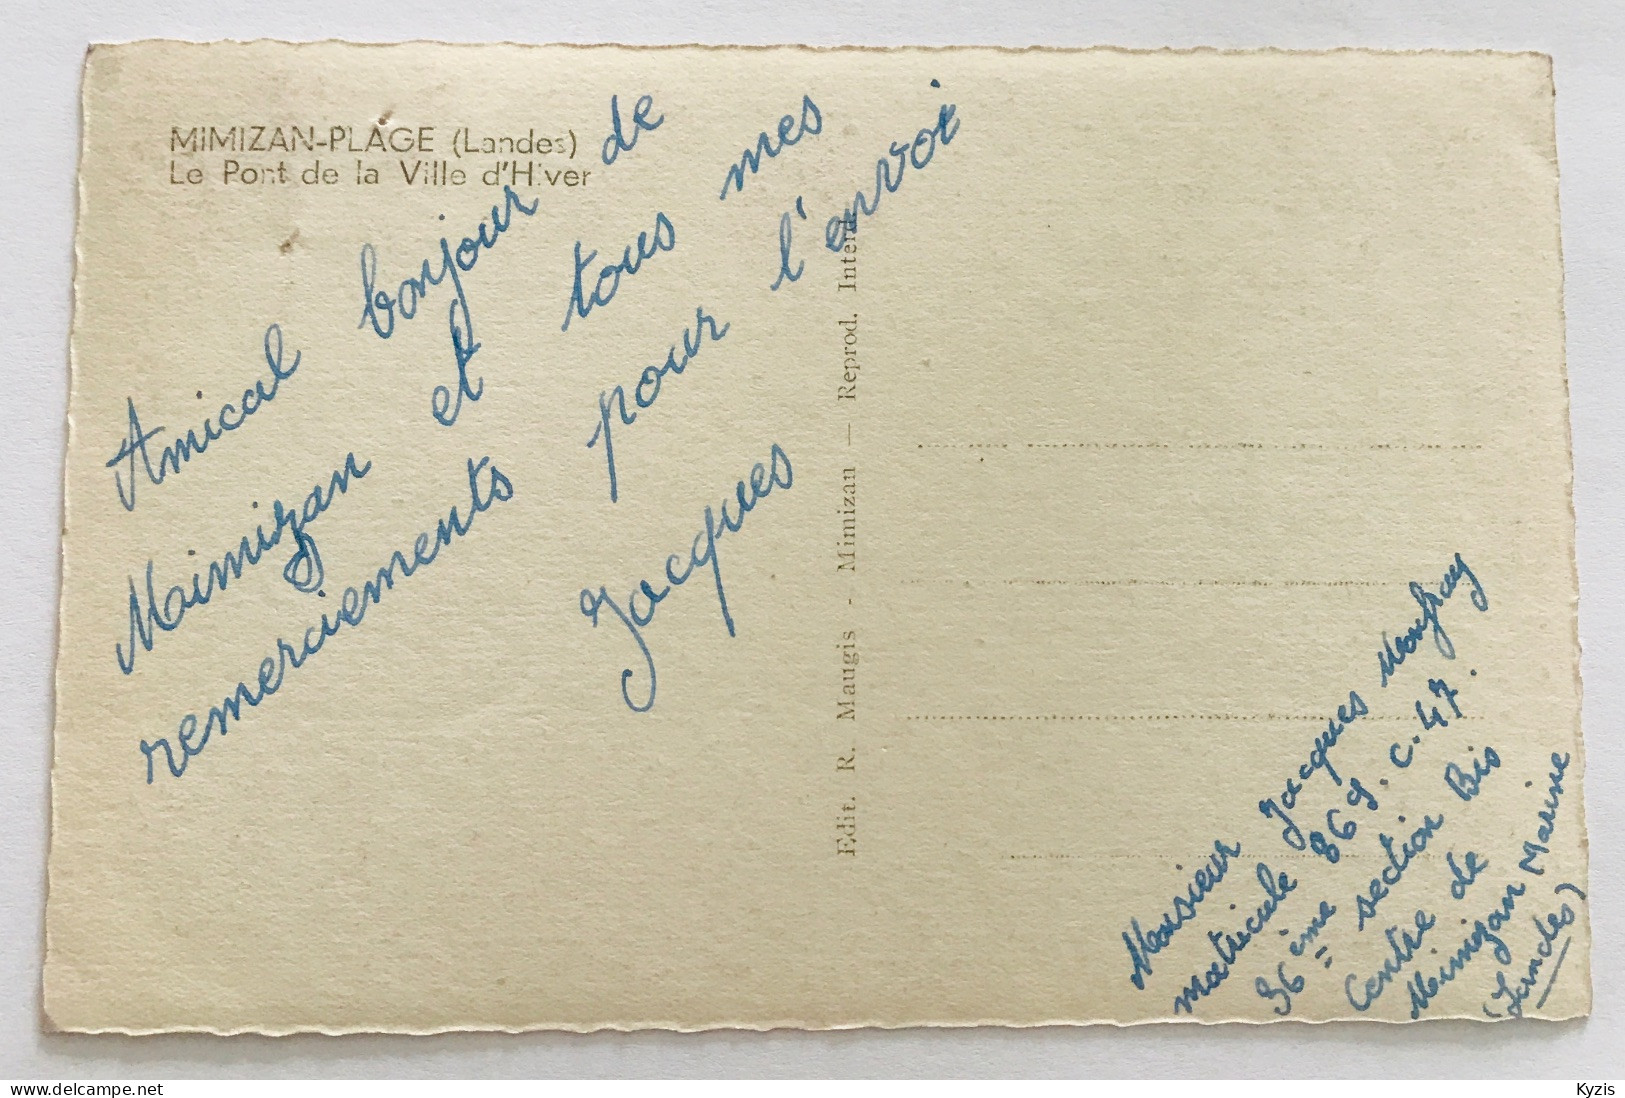 MIMIZAN-PLAGE (Landes)
Le Pont de la Ville d'Hiver
Amical bonjour de
Mimizan et tous mes
remerciements pour l'envoi
Jacques
Edit. R. Maugis - Mimizan — Reprod. Interd.
Monsieur Jacques
matricule 869. C. 47.
36ème section Bis
Centre de
Mimizan Marine
(Landes)
Kyzis
delcampe.net